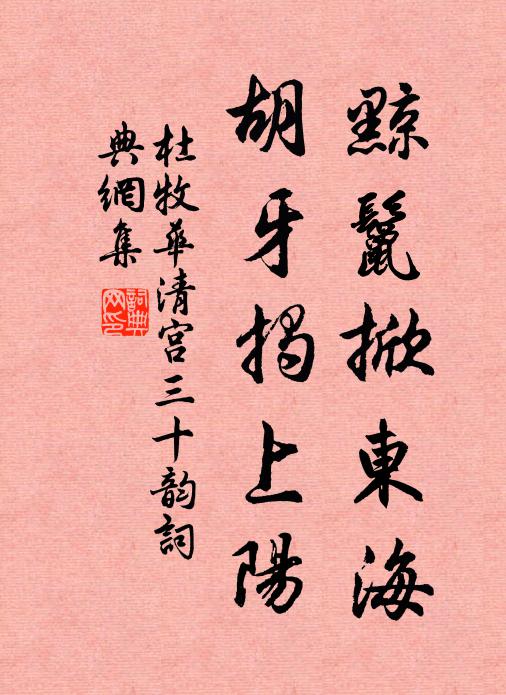 黥鬣掀東海
胡牙揭上陽
杜牧華清宮三十韵詞
典網集
詞典
网印